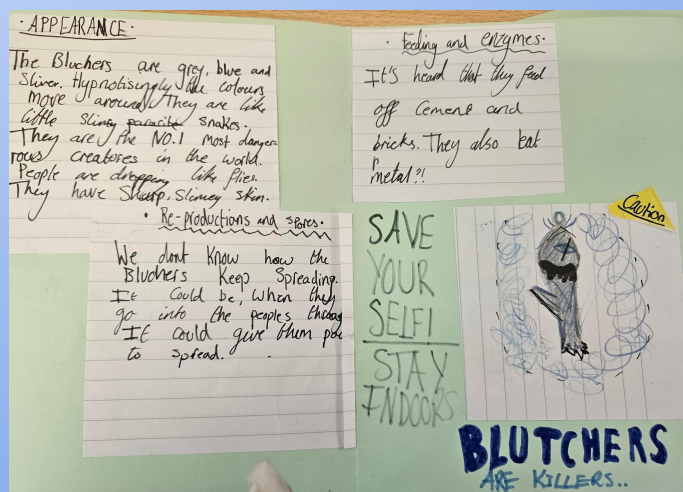 · APPEARANCE ·
The Bluchers are grey, blue and
Sliver. Hypnotisingly the colours
move around. They are like
little slimey paracite snakes.
They are the NO.1 most danger-
rous creatores in the world.
People are dropping like flies.
They have Sharp. Slimey skin.
· Re-productions and spores.
We dont know how the
Bluchers keep spreading.
It could be, when they
go into the peoples
It could give them
to spread.
· Feeding and enzymes·
It's heard that they feed
off cement and
bricks. They also eat
metal?!
SAVE
YOUR
SELF!
STAY
INDOORS
Caution
BLUTCHERS
ARE KILLERS..